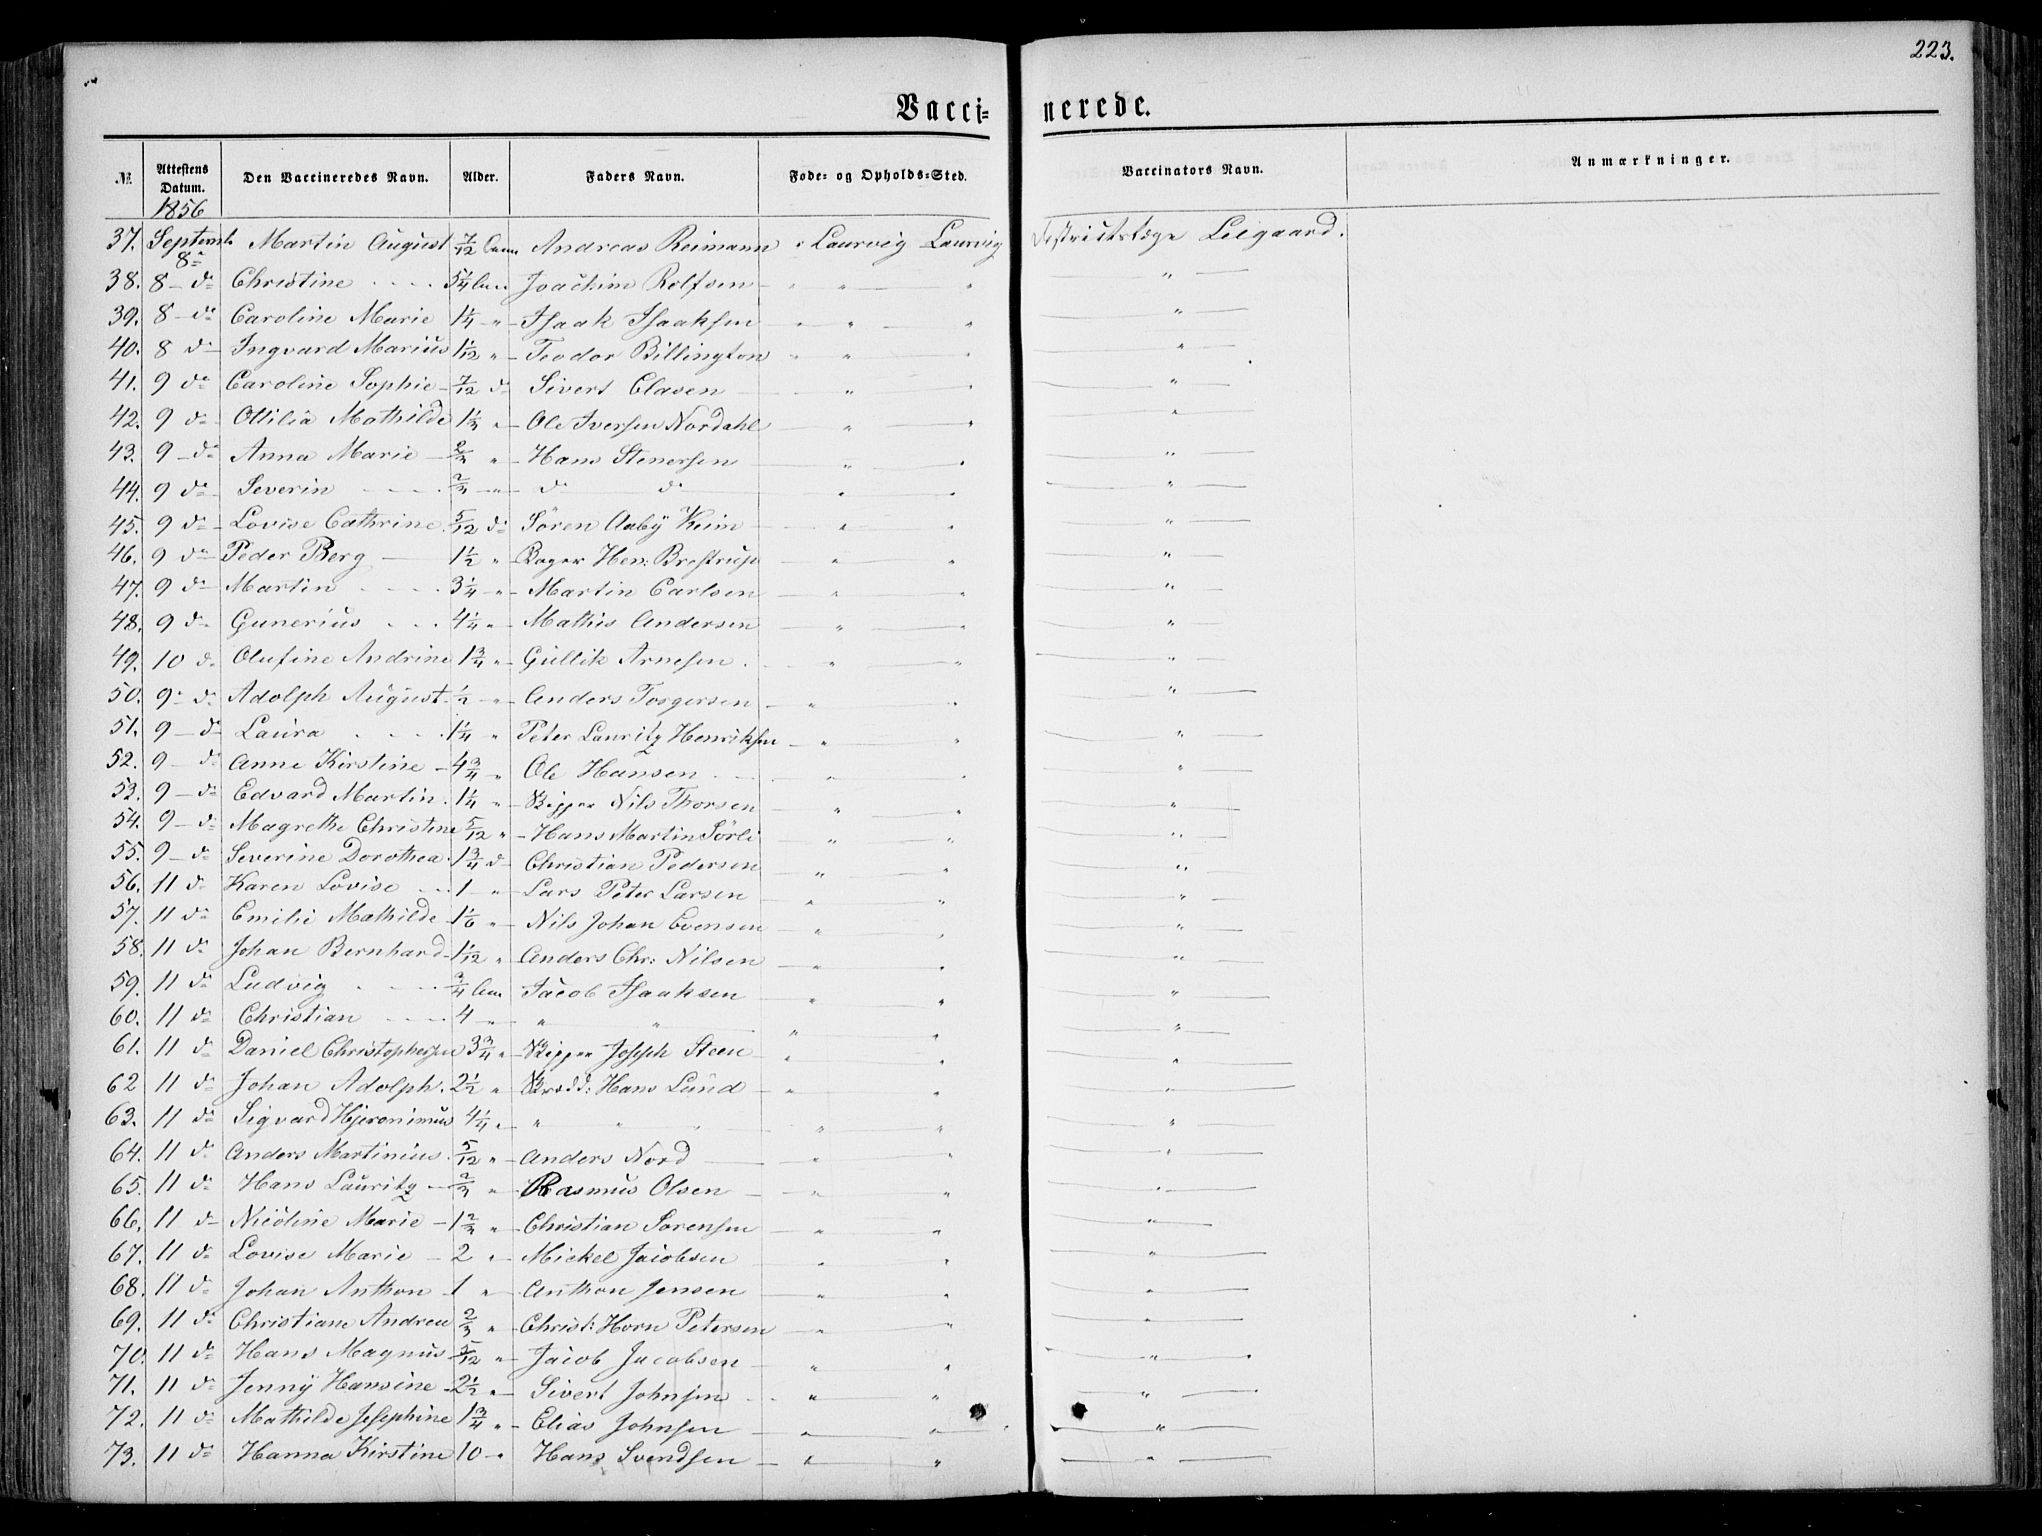 223.
Vacci= nerede.
№ Attestens Datum. Den Vaccineredes Navn. Alder. Faders Navn. Føde- og Opholds-Sted. Vaccinators Navn. Anmærkninger.
1856
37. Septemb 8de Martin August 7/12 Andreas Reimann Laurvig Laurvig Distriktslæge Leegaard.
38. 8 do Christine 5 1/4 Joachim Rolfsen " " "
39. 8 do Caroline Marie 1 1/4 " Isaak Isaaksen " " "
40. 8 do Ingvard Marius 1 1/12 " Teodor Billington " " "
41. 9 do Caroline Sophie 7/12 do Sivert Clasen " " "
42. 9 do Ottilia Mathilde 1 1/3 " Ole Iversen Nordahl " " "
43. 9 do Anna Marie 2/3 " Hans Stenersen " " "
44. 9 do Severin 2/3 " do do " " "
45. 9 do Lovise Cathrine 5/12 do Sören Aaby Keim " " "
46. 9 do Peder Berg 1 1/2 " Bager Hen: Brostrup " " "
47. 9 do Martin 3 1/4 " Martin Carlsen " " "
48. 9 do Gunerius 4 1/4 " Mathis Andersen " " "
49. 10 do Olufine Andrine 1 3/4 " Gullik Arnesen " " "
50. 9 do Adolph August 1/2 " Anders Torgersen " " "
51. 9 do Laura 1 1/4 " Peter Lauritz Henriksen " " "
52. 9 do Anne Kirstine 4 3/4 " Ole Hansen " " "
53. 9 do Edvard Martin 1 1/4 " Skipper Nils Thorsen " " "
54. 9 do Magrethe Christine 5/12 " Hans Martin Sörli " " "
55. 9 do Severine Dorothea 1 3/4 do Christian Pedersen " " "
56. 11 do Karen Lovise 1 " Lars Peter Larsen " " "
57. 11 do Emilie Mathilde 1 1/6 " Nils Johan Evensen " " "
58. 11 do Johan Bernhard 1 1/12 " Anders Chr: Nilsen " " "
59. 11 do Ludvig 3/4 Jacob Isaaksen " " "
60. 11 do Christian 4 " " " " " "
61. 11 do Daniel Christophersen 3 3/4 " Skipper Joseph Steen " " "
62 11 do Johan Adolph. 2 1/2 " Skredd: Hans Lund " " "
63. 11 do Sigvard Hjeronimus 4 1/4 " " " " " " "
64. 11 do Anders Martinius 5/12 " Anders Nord " " "
65. 11 do Hans Lauritz 2/3 " Rasmus Olsen " " "
66. 11 do Nicoline Marie 1 2/3 " Christian Sorensen " " "
67. 11 do Lovise Marie 2 " Mickel Jacobsen " " "
68. 11 do Johan Anthon 1 " Anthon Jensen " " "
69. 11 do Christiane Andrea 2/3 " Christ: Horn Petersen " " "
70. 11 do Hans Magnus 5/12 " Jacob Jacobsen " " "
71. 11 do Jenny Hansine 2 1/2 " Sivert Johnsen " " "
72. 11 do Mathilde Josephine 1 3/4 " Elias Johnsen " " "
73. 11 do Hanna Kirstine 10 " Hans Svendsen " " "